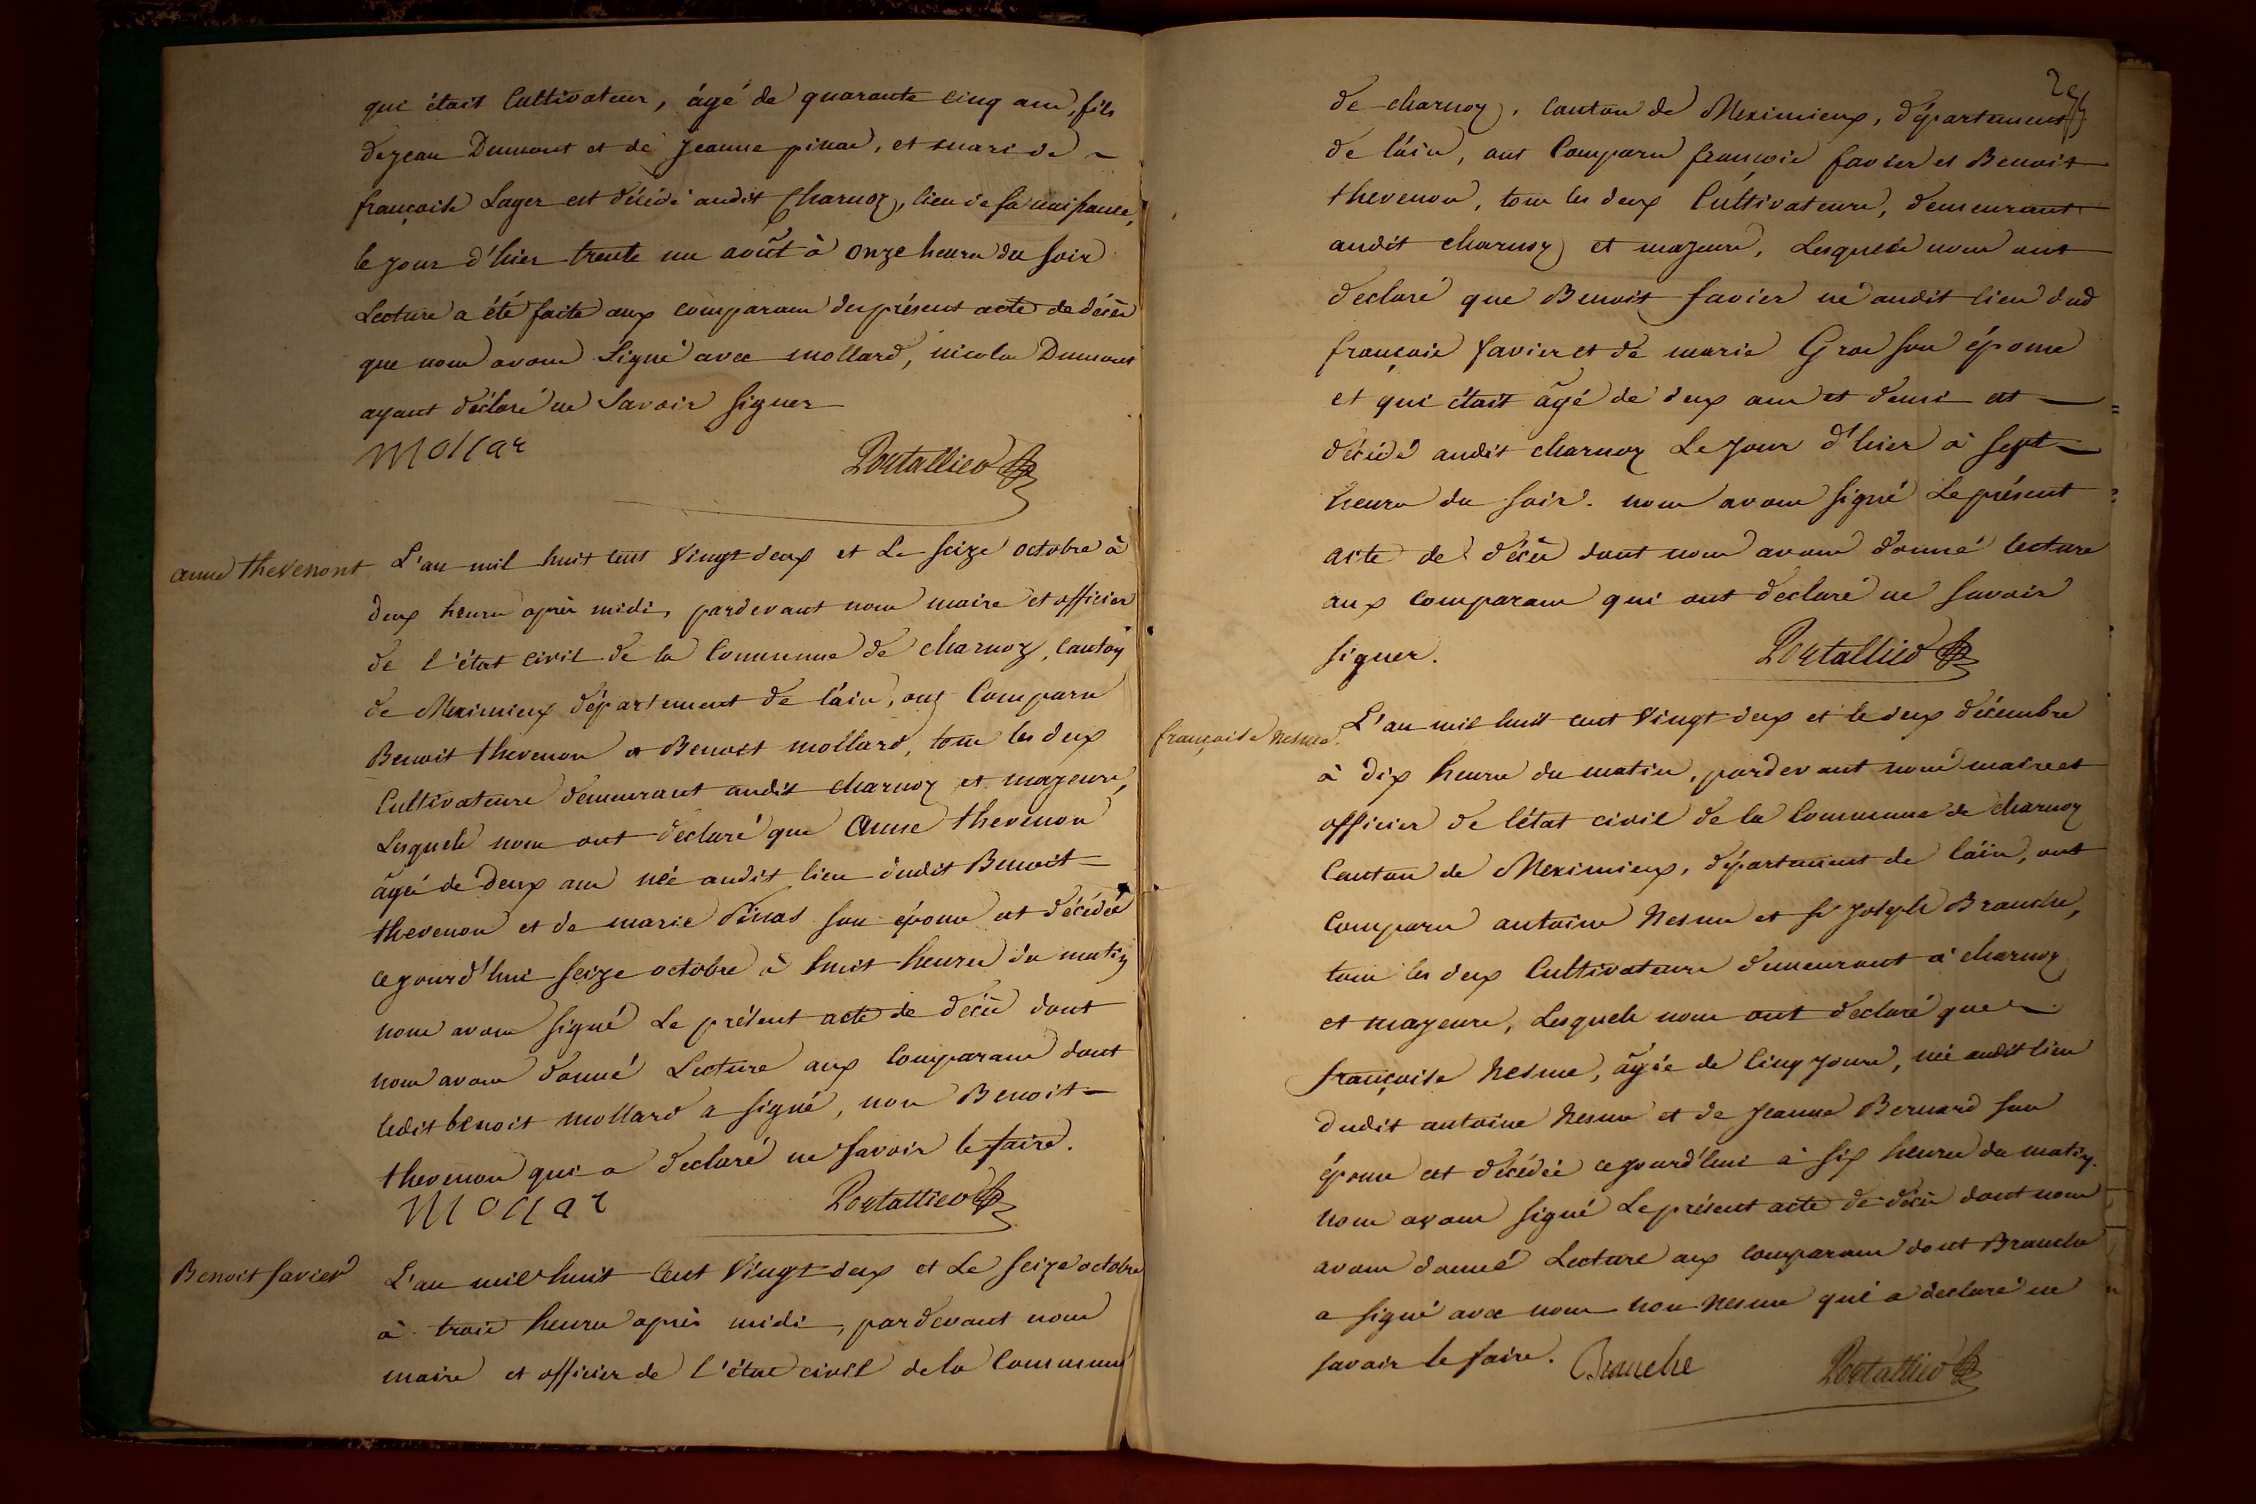 qui était Cultivateur, âgé de quarante cinq ans, fils
de jean Dumont et de Jeanne pinas, et mari de
françoise Lager est décédé audit Charnoz, lieu de sa naissance,
le jour d'hier trente un août à onze heures du soir
Lecture a été faite aux comparans du présent acte de décès
que nous avons Signé avec mollard, nicolas Dumont
ayant déclaré ne Savoir signer
Mollar
Portallier
anne thevenont
L'an mil huit cent Vingt deux et Le seize octobre à
deux heures après midi, pardevant nous maire et officier
de l'état civil de la Commune de charnoz, Canton
de Meximieux département de l'ain, ont Comparu
Benoit thevenon et Benoit mollard, tous les deux
Cultivateurs demeurant audit charnoz et majeurs,
Lesquels nous ont déclaré que Anne thevenon
âgée de Deux ans née audit lieu dudit Benoit
thevenon et de marie Pinas son épouse est décédée
cejourd'hui seize octobre à huit heures du matin
nous avons signé Le présent acte de décès dont
nous avons donné Lecture aux Comparans dont
ledit benoit mollard a signé, non Benoit
thevenon qui a déclaré ne Savoir le faire.
Mollar
Portallier
Benoit favier
L'an mil huit Cent Vingt deux et Le seize octobre
à trois heures après midi, pardevant nous
maire et officier de l'état civil de la Commune
de charnoz, Canton de Meximieux, département
de l'ain, ont Comparu françois favier et Benoit
thevenon, tous les deux Cultivateurs, demeurant
audit charnoz et majeurs, Lesquels nous ont
déclaré que Benoit favier né audit lieu dud
françois favier et de marie Gros son épouse
et qui était âgé de deux ans et demi est
décédé audit charnoz Le Jour d'hier à Sept
heures du Soir. nous avons signé Le présent
acte de décès dont nous avons donné lecture
aux Comparans qui ont déclaré ne Savoir
signer.
Portallier
françoise nesme.
L'an mil huit cent Vingt deux et le deux décembre
à dix heures du matin, pardevant nous maire et
officier de l'état civil de la Commune de charnoz
Canton de Meximieux, département de l'ain, ont
Comparu antoine Nesme et Sr Joseph Branche,
tous les deux Cultivateurs demeurant à charnoz
et majeurs, Lesquels nous ont déclaré que
françoise Nesme, âgée de Cinq Jours, née audit lieu
dudit antoine Nesme et de Jeanne Bernard son
épouse est décédée cejourd'hui à six heures du matin.
nous avons signé Le présent acte de décès dont nous
avons donné Lecture aux comparans dont Branche
a signé avec nous non nesme qui a déclaré ne
savoir le faire.
Branche
Portallier